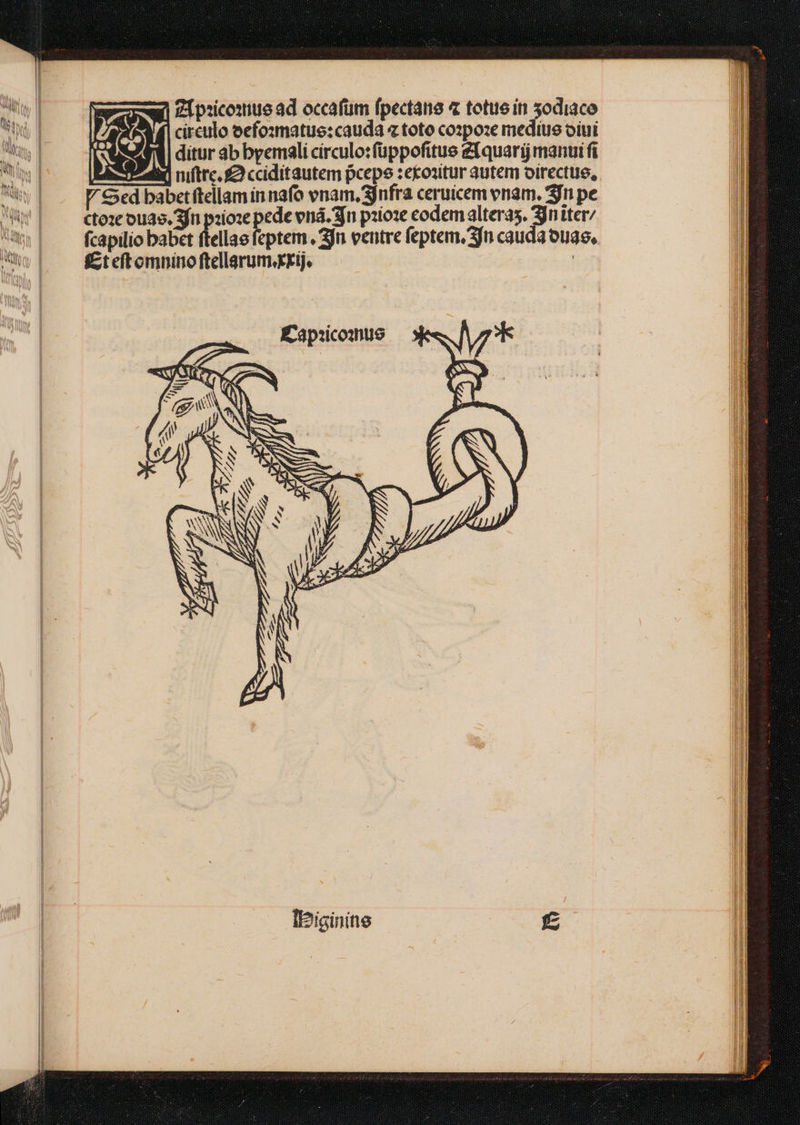 CApricornus ad occaſum ſpectans ⁊ totus in zodiaco
circulo deformatus: cauda ⁊ toto corpore medius diui
ditur ab hyemali circulo: ſuppoſitus Aquarij manui ſi
niſtre. Occidit autem p̄ceps : exoritur autem directus,
Sed habet ſtellam in naſo vnam. Infra ceruicem vnam. In pe
ctore duas. In priore pede vnã. In priore eodem alteraz. In iter/
ſcapilio habet ſtellas ſeptem. In ventre ſeptem. In cauda duas.
Et eſt omnino ſtellarum. xxij.
Capricornus
Higinius E